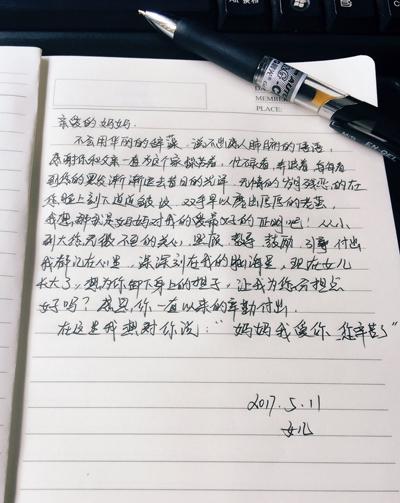 亲爱的妈妈:
不会用华丽的辞藻,说不出感人肺腑的话语,
感谢你和父亲一直为这个家操劳着,忙碌着,奔波着,每每看
到你的黑发渐渐逝去昔日的光泽,无情的岁月残忍的在
你脸上刻下道道皱纹,双手早以磨出层层的老茧,
我想那就是妈妈对我的爱最好的证明吧!从小
到大你无微不至的关心,照顾,教导,鼓励,引导,付出
我都记在心里,深深刻在我的脑海里,现在女儿
长大了,想为你卸下身上的担子,让我为你分担点
好吗?感恩你一直以来的辛勤付出.
在这里我想对你说:"妈妈我爱你,您辛苦了"
2017.5.11
女儿
MEMBER
PLACE: